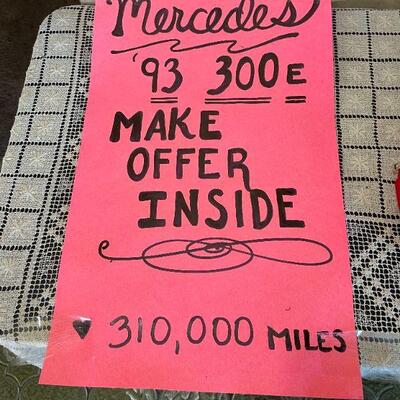 Mercedes
'93 300E
MAKE
OFFER
INSIDE
♥ 310,000 MILES